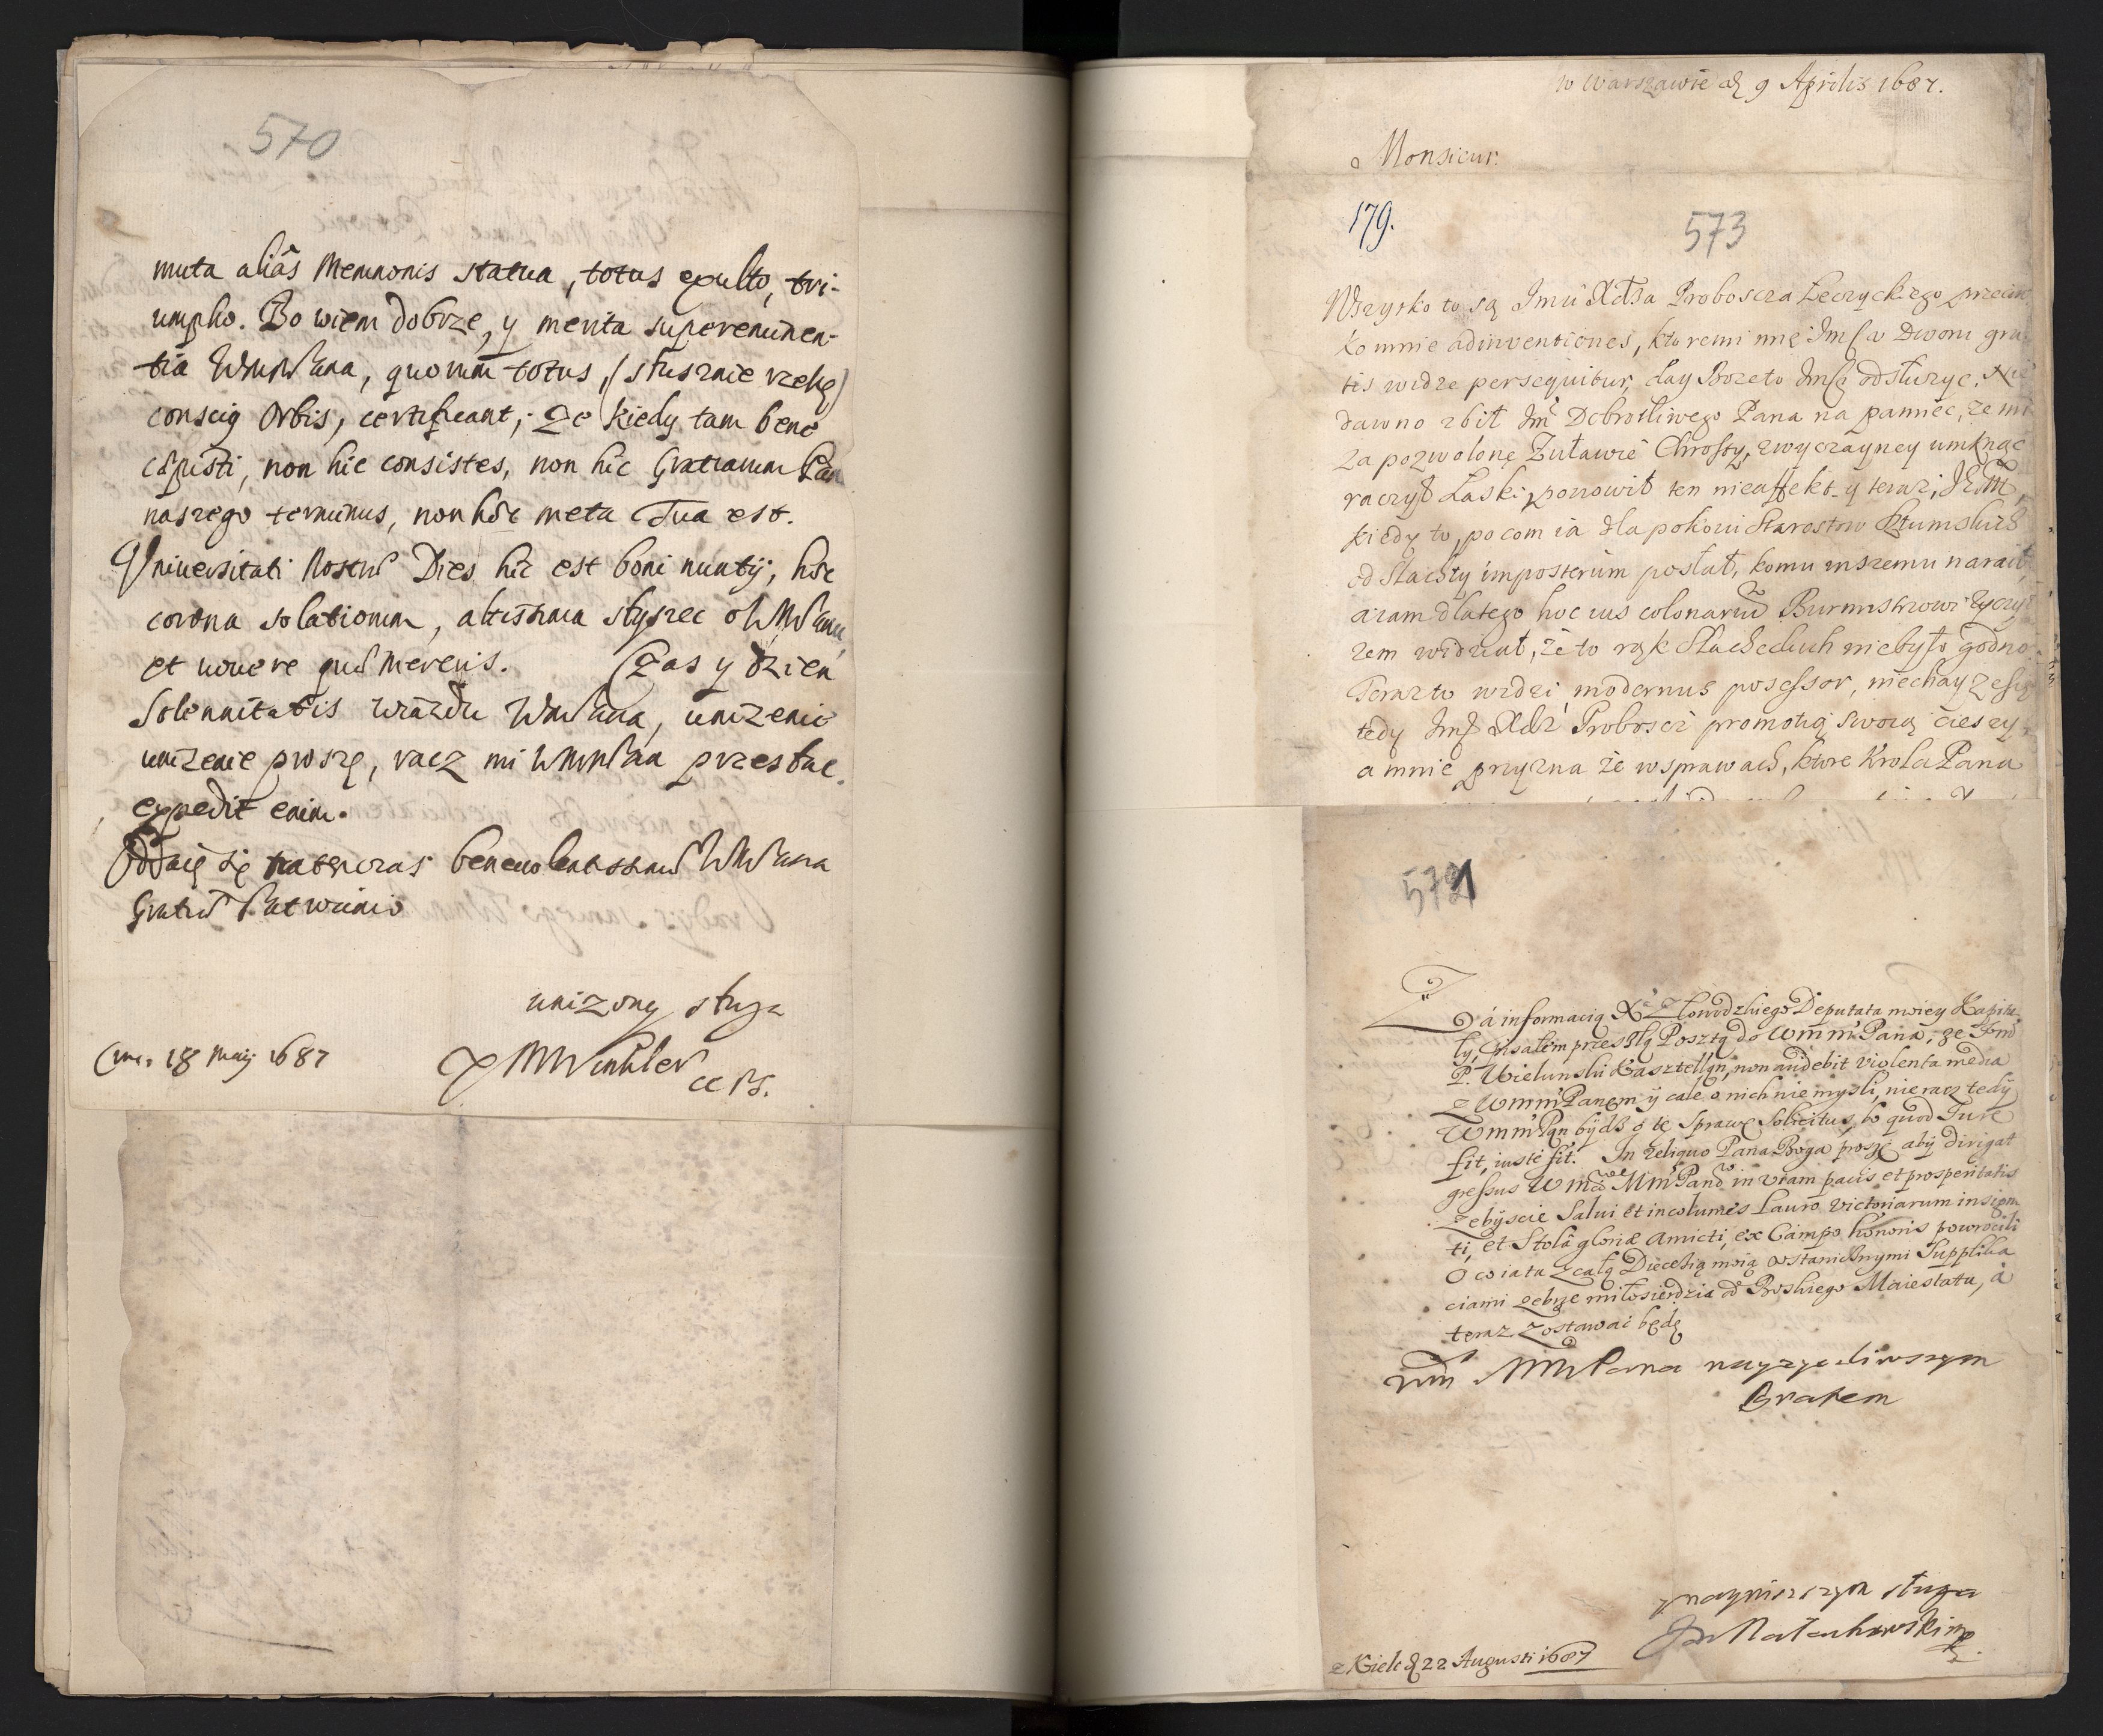 570
muta aliâs Memnonis statua, totus exulto, tri-
umpho. Bo wiem dobrze, y merita supereminen-
tia WmMPana, quorum totus, (słusznie rzekę)
conscig Orbis, certificant; Ze kiedy tam bene
cœpisti, non hic consistes, non hîc Gratiarum Pan
naszego terminus, non hæc meta Tua est.
Vniversitati Nostræ Dies hic est boni nuntij, hæc
corona solationum, altissima słyszec o WMPanu,
et vovere quæ mereris. Czas y dzien
Solennitatis wiazdu WmPana, unizenie
unizenie proszę, racz mi WmMPan przesłac.
expedit enim.
Oddaię się natenczas benevolentissimæ WMPana
Gratiæ
unizony sługa
Crac. 18 Maij 1687
X MWinkler
w Warszawie d 9 Aprilis 1687.
Monsieur.
179.
573
Wszystko to są Jmci Xdza Proboszcza Łęczyckiego przeciw
ko mnie adinventiones, ktoremi mię Jmść a Dworu gra
tis widze persequitur, day Boze to Jmśći odsłuzyc. Nie
dawno zbił Jmć Dobrotliwego Pana na pamięc, ze mi
za pozwolonę Zuławie Chrosty, zwyczayney umknąc
raczył Łaski, ponowił ten nieaffekt y teraz,
kiedy to, po com ia dla pokoiu Starostow Sztumskich
od Slachty imposterum posłał, komu inszemu naraił,
azam dlatego hoc ius colonariũ Burmistrzowi zyczył
zem widział, że to rąk Slacheckich niebyło godno
Teraz to widzi modernus possessor, niechay ze się
tedy Jmść Xdz Proboszcz promotią swoią cieszy,
a mnie przyzna że w sprawach, ktore Krola Pana
571
Zá informacią Xᵈᶻ Złowodzkiego Deputata moiey Kapitu
ły, pisałem przeszłą Posztą do WmmPana; ze Jmć
P. Wielunski Kasztellan, non audebit violenta media
z WmmPanem ÿ cale o nich nie mysli, nie racz tedÿ
WmmPan bydź o tę Sprawę Solicitus, bo quod Jure
fit, iuste fit. In reliquo Pana Boga proszę abÿ dirigat
gressus Wmć MmPanõ in viam pacis et prosperitatis
zebÿscie Salui et incolumes Lauro victoriarum insigni
ti, et Stolâ gloriæ amicti, ex Campo honoris powrocili
O co ia tu z całą Diecesią moią ustawicznymi Supplika
ciami zebrze miłosierdzia od Boskiego Maiestatu, á
teraz zostawać będę
Wm MMPana nayzyczliwszym
Bratem
y naynizszym sługą
Jan Małachowski
z Kielc d 22 Augusti 1687